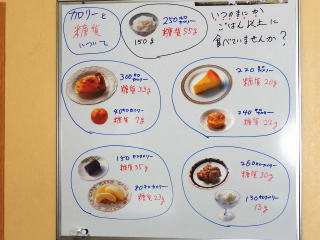 カロリーと
糖質
について
150g
250カロリー
糖質 55g
いつのまにか
ごはん以上に
食べていませんか?
300カロリー
糖質 33g
40カロリー
糖質 7g
220カロリー
糖質 20g
240カロリー
糖質 22g
150カロリー
糖質 35g
80カロリー
糖質 23g
260カロリー
糖質 30g
130カロリー
13g